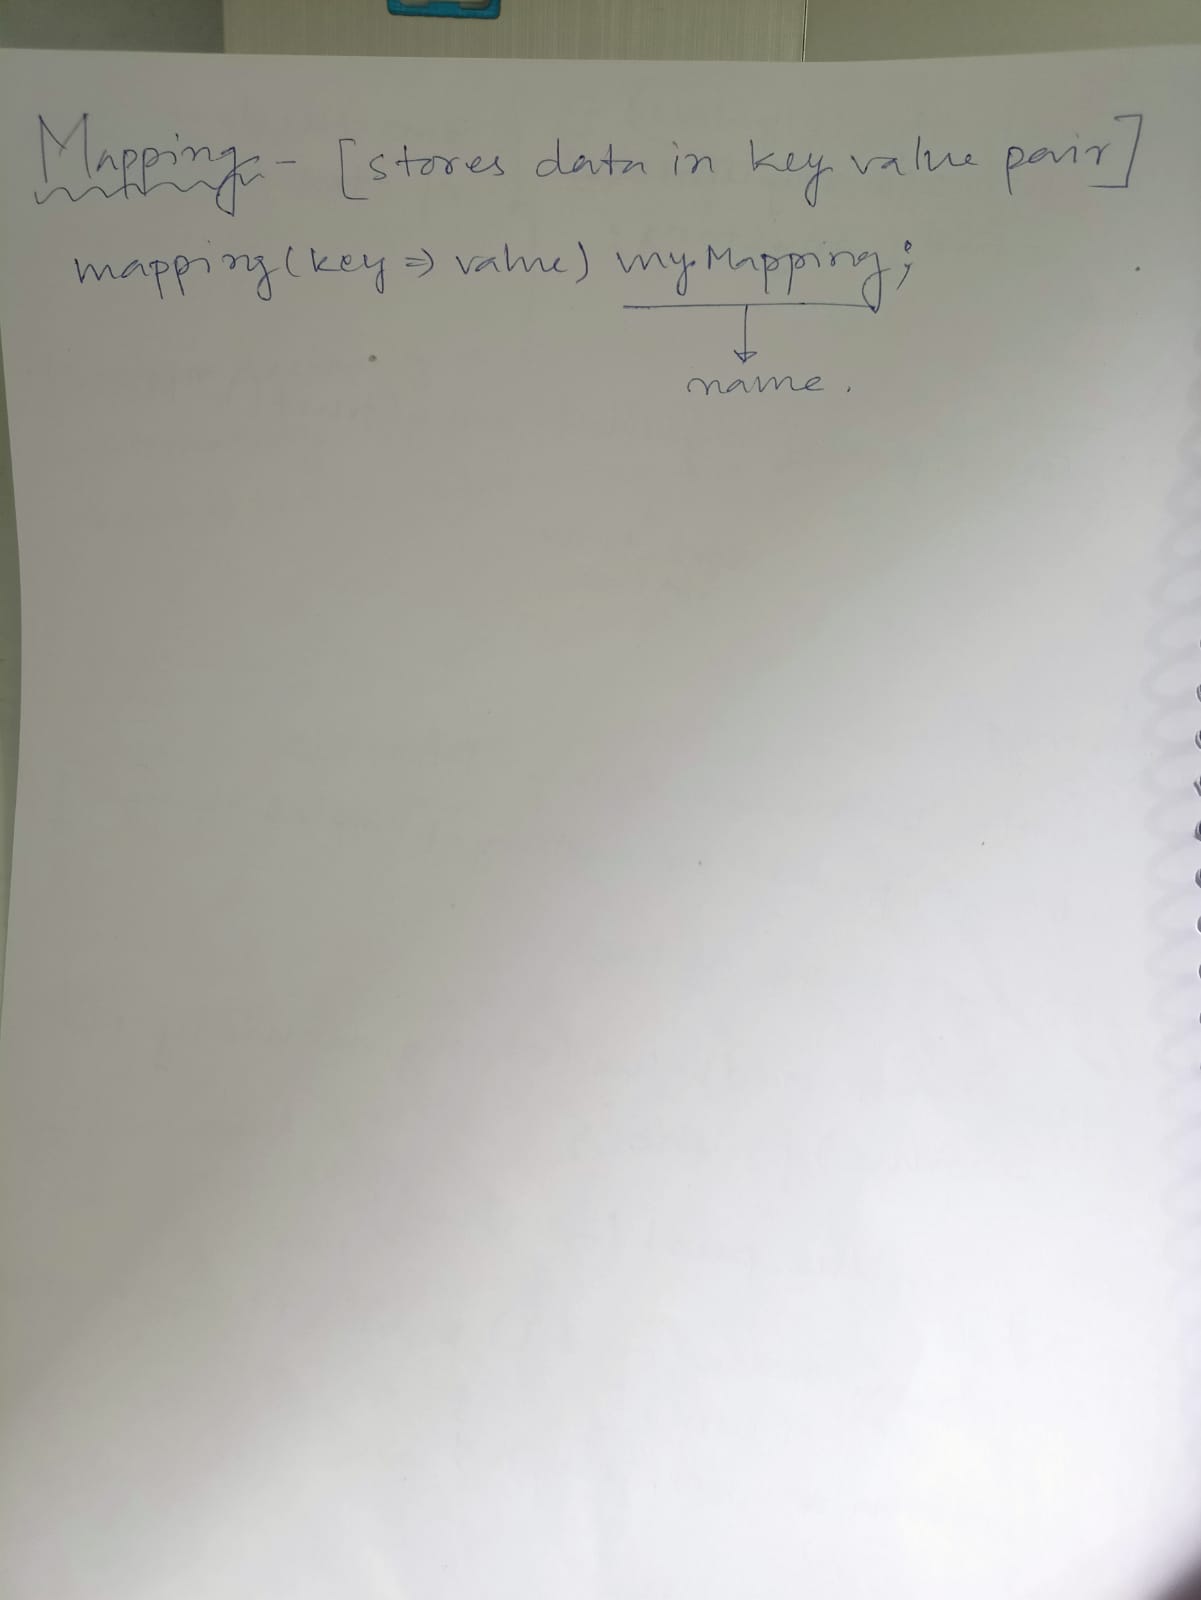 Mapping - [stores data in key value pair]
mapping(key => value) myMapping;
name.